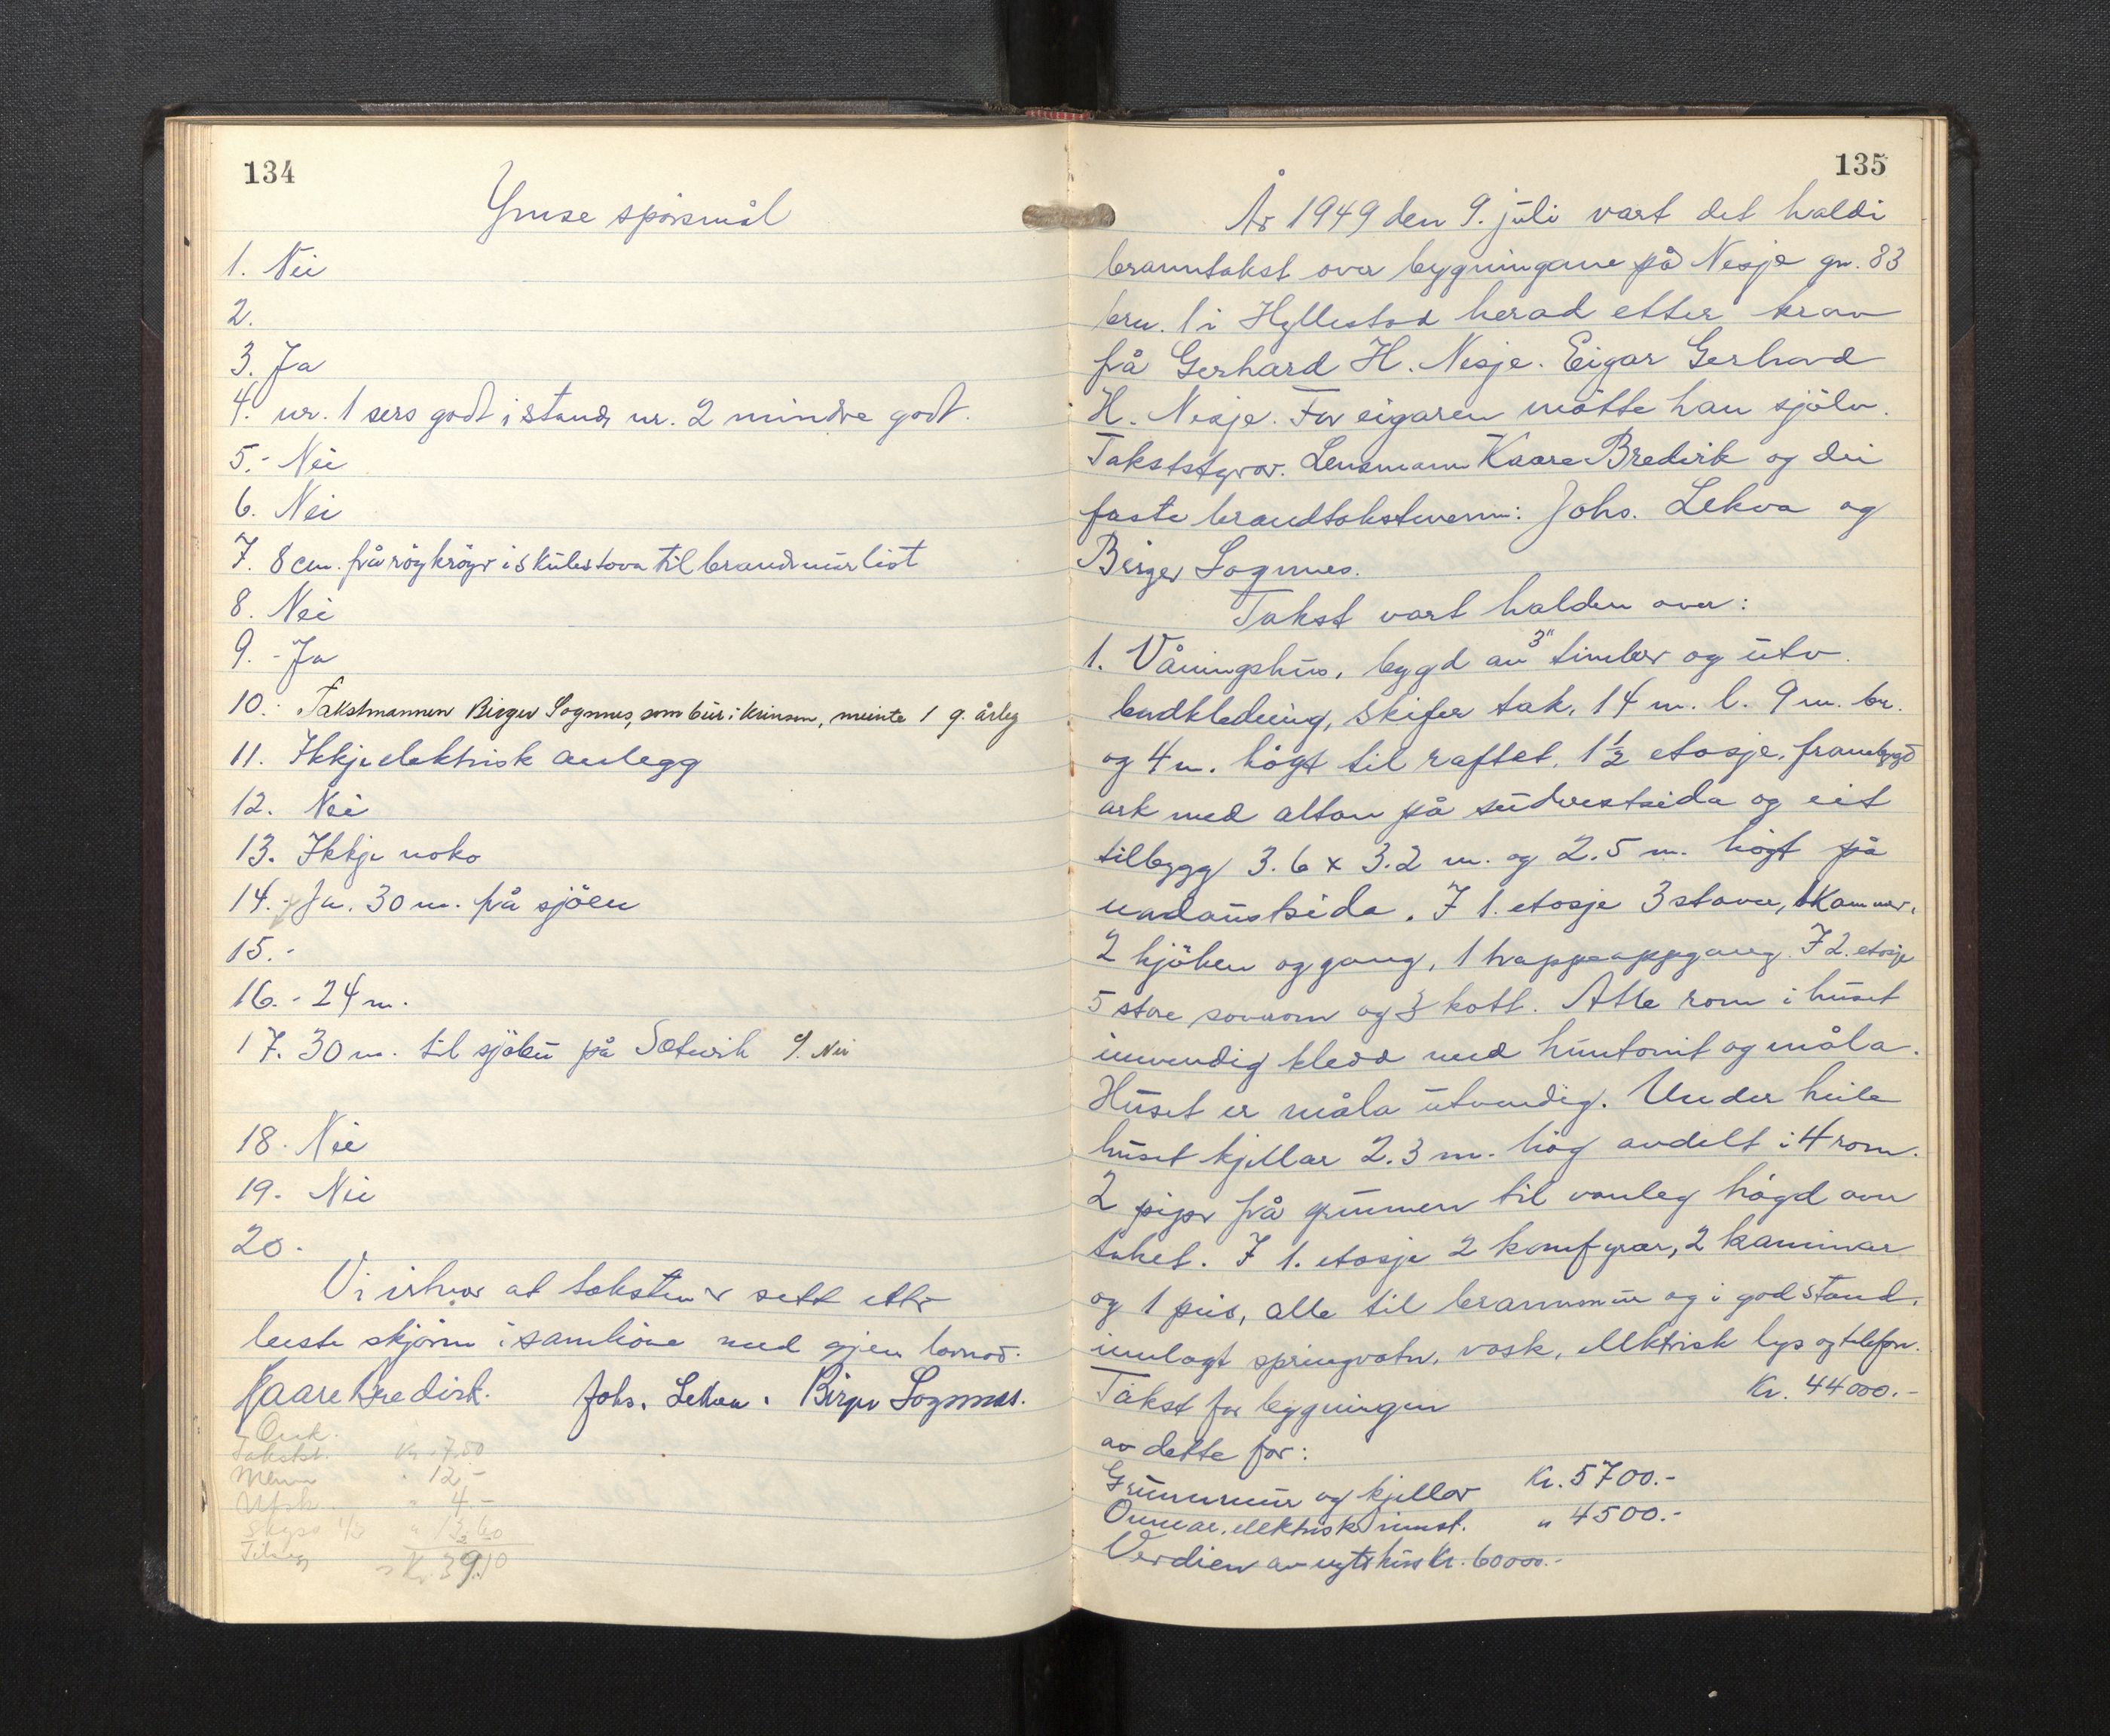 134
Ymse spörsmål
1. Nei
2.
3. Ja
4. nr. 1 sers godt i stand, nr. 2 mindre godt.
5.- Nei
6. Nei
7. 8 cm. frå röykröyr i skulestova til brandmur list
8. Nei
9. - Ja
10. Takstmannen Birger Sognnes, som bur i krinsen, meinte 1 g. årleg
11. Ikkje elektrisk anlegg
12. Nei
13. Ikkje noko
14. - Ja. 30 m. frå sjöen
15. -
16. - 24 m.
17. 30 m. til sjöen på Sætevik 9. Nei
18. Nei
19. Nei
20.
Vi at taksten er sett etter
beste skjönn i samhöve med gjeven lovnad.
Kaare Bredvik. Johs. Lekva. Birger Sognnes.
Takstst. Kr. 7.50
Menn " 12,-
" 4.-
Skyss 1/3 " 13.60
Kr. 39.10
135
År 1949 den 9. juli vart det haldi
branntakst over bygningane på Nesje gn. 83
brn. 1 i Hyllestad herad etter krav
frå Gerhard H. Nesje. Eigar Gerhard
H. Nesje. For eigaren mötte han sjölv.
Takststyrar. Lensmann Kaare Bredvik og dei
faste brandtakstmenn: Johs. Lekva og
Birger Sognnes.
Takst vart halden over:
1. Våningshus, bygd av 3" timber og utv.
bordkledning, skifer tak, 14 m. l. 9 m. br.
og 4 m. högt til raftet. 1 1/2 etasje, frambygd
ark med altan på südvestsida og eit
tilbygg 3.6 x 3.2 m. og 2.5 m. högt på
nordaustsida. I 1. etasje 3 stover, 1 kammer,
2 kjöken og gang, 1 trappeoppgang. I 2. etasje
5 store soverom og 3 kott. Alle rom i huset
innvendig kledd med huntonit og måla.
Huset er måla utvendig. Under heile
huset kjellar 2.3 m. hög avdelt i 4 rom.
2 piper frå grunnen til vanleg högd over
taket. I 1. etasje 2 komfyrar, 2 kaminar
og 1 peis, alle til brannmur og i god stand,
innlagt springvatn, vask, elektrisk lys og telefon.
Takst for bygningen Kr. 44000.-
av dette for:
Grunnmur og kjellar Kr. 5700.-
Omnar, elektrisk innst. " 4500.-
Verdien av nytt hus Kr. 60000.-